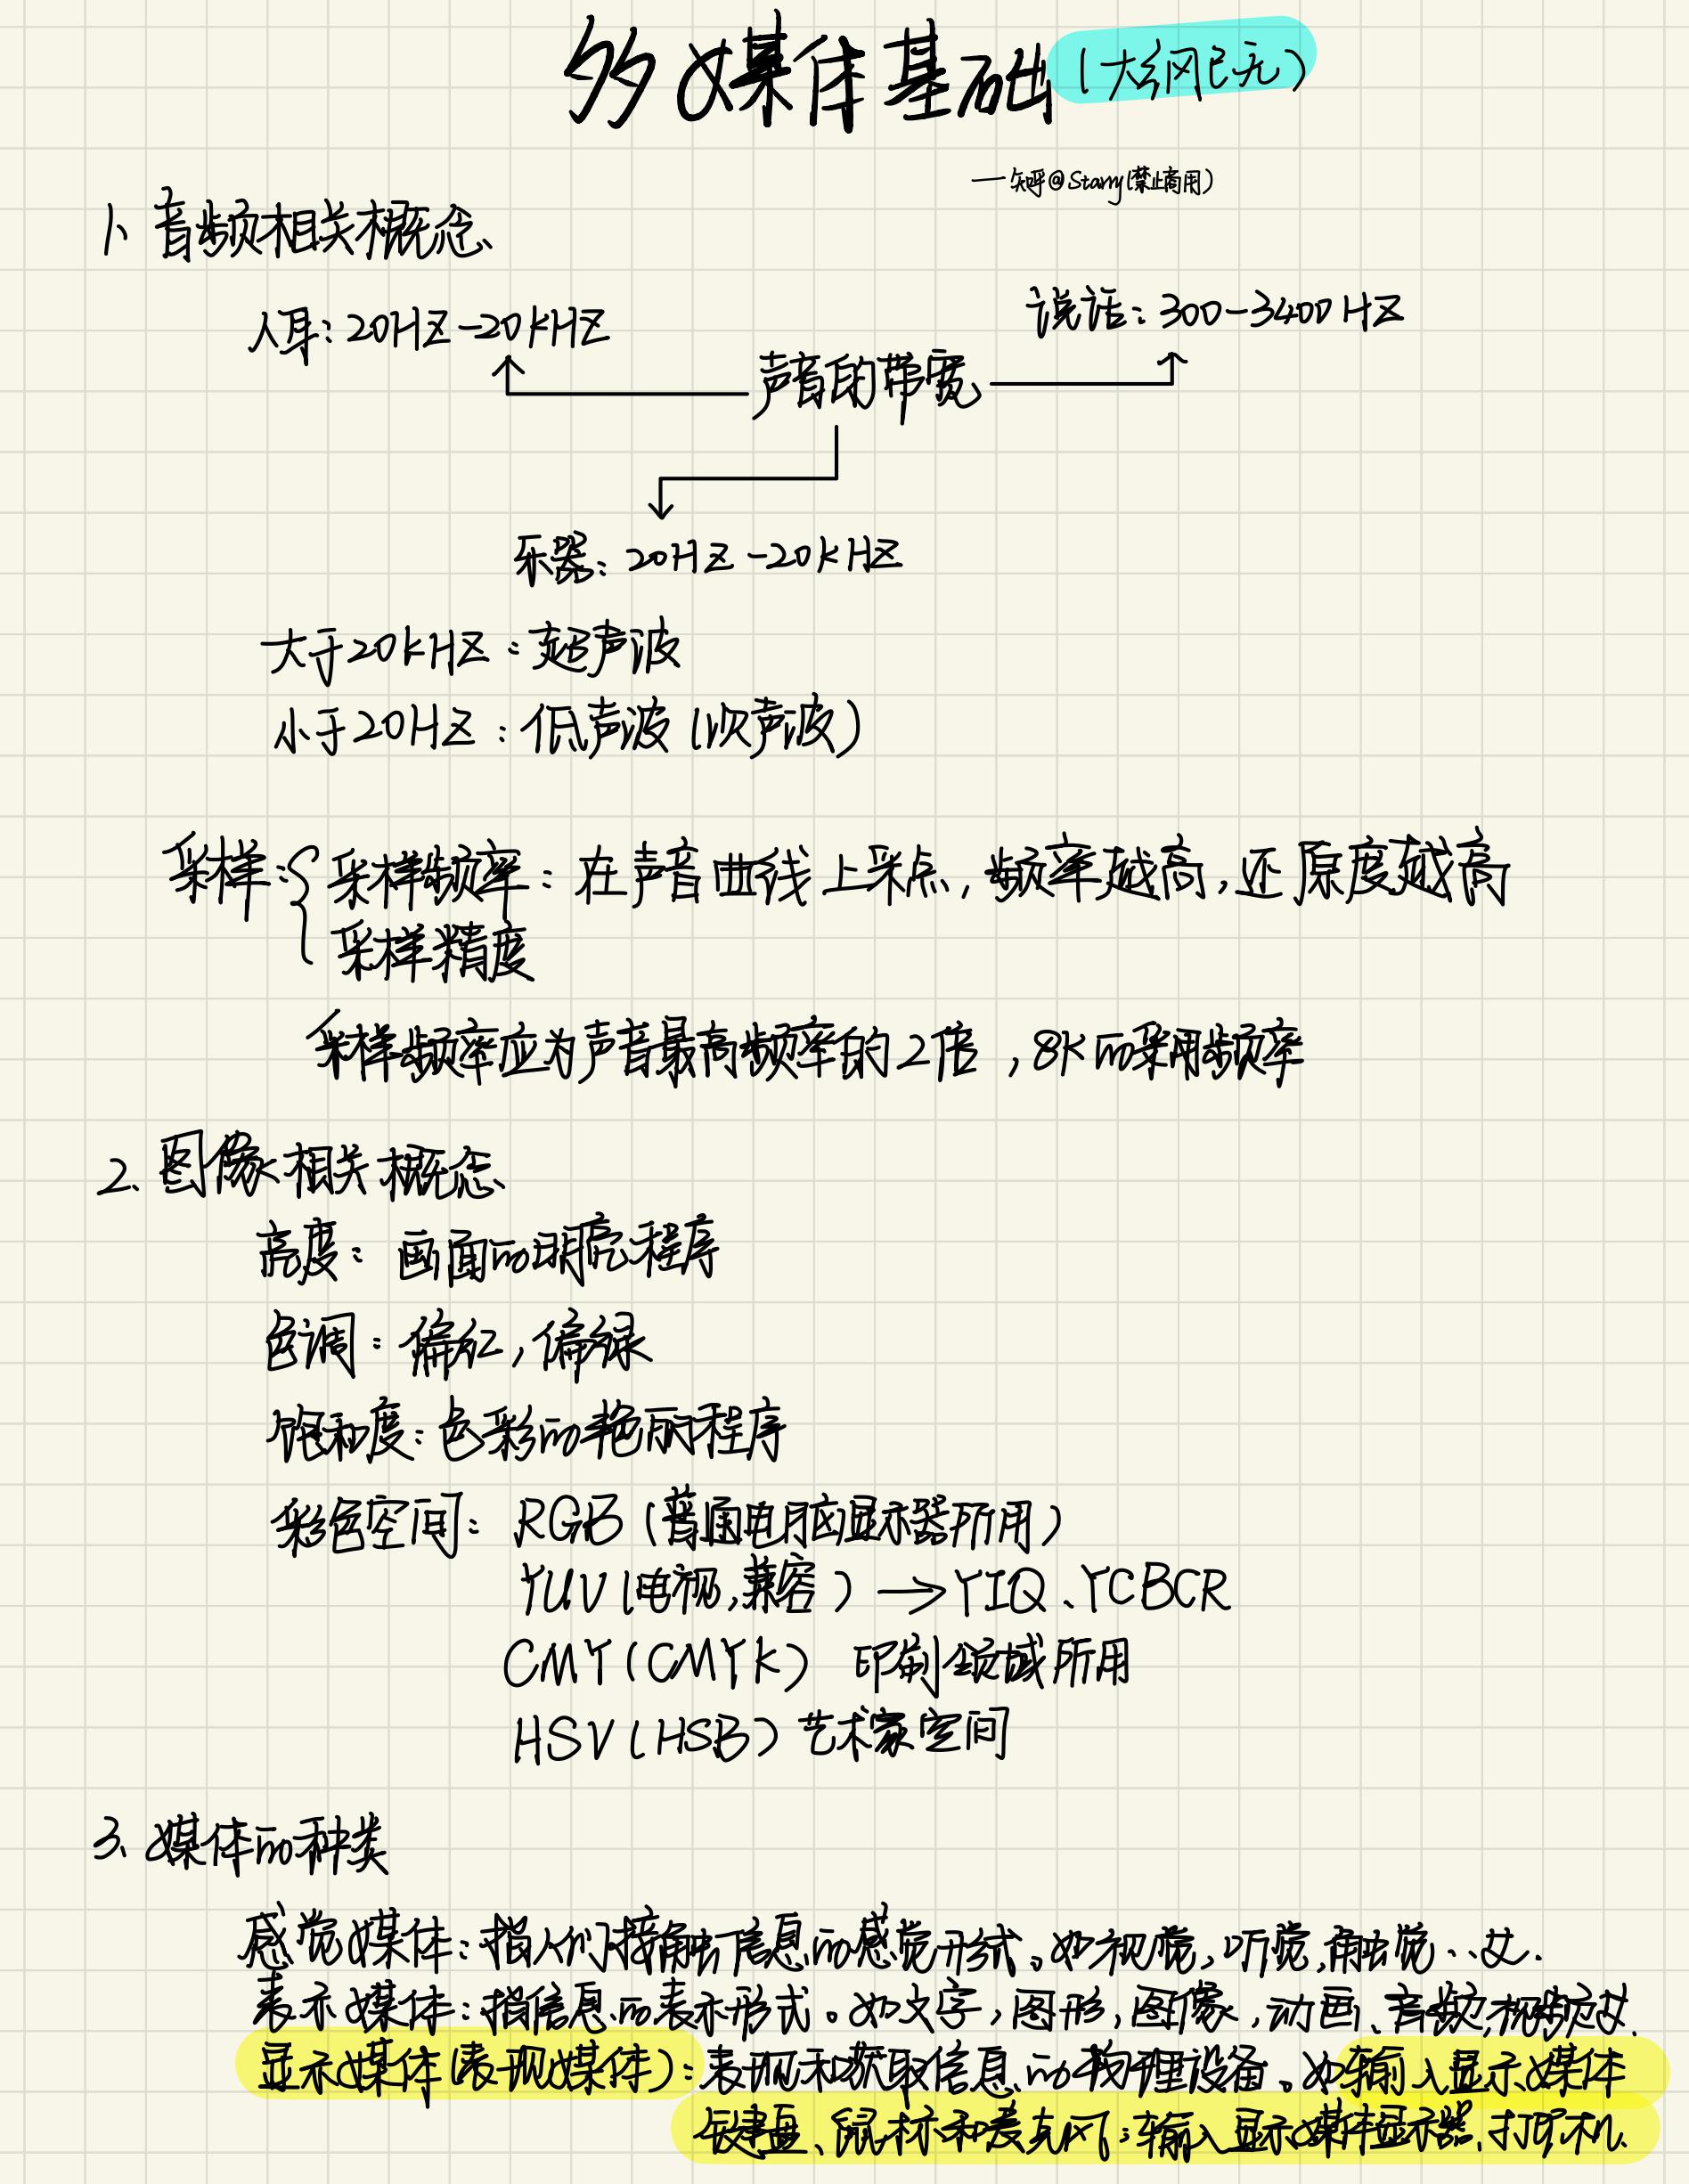 多媒体基础(大纲已无)
—知乎@Starry(禁止商用)
1、音频相关概念
人耳:20HZ-20kHZ
说话:300-3400HZ
声音的带宽
乐器:20HZ-20kHZ
大于20kHZ:超声波
小于20HZ:低声波(次声波)
采样:
采样频率:在声音曲线上采点,频率越高,还原度越高
采样精度
采样频率应为声音最高频率的2倍,8K的采用频率
2、图像相关概念
亮度:画面的明亮程序
色调:偏红,偏绿
饱和度:色彩的艳丽程序
彩色空间:RGB(普通电脑显示器所用)
YUV(电视,兼容)→YIQ、YCBCR
CMY(CMYK) 印刷领域所用
HSV(HSB)艺术家空间
3、媒体的种类
感觉媒体:指人们接触信息的感觉形式。如视觉,听觉,触觉
表示媒体:指信息的表示形式。如文字,图形,图像,动画、音频,视频
显示媒体(表现媒体):表现和获取信息的物理设备。如输入显示媒体
键盘、鼠标和麦克风;输入显示媒体显示器、打印机、